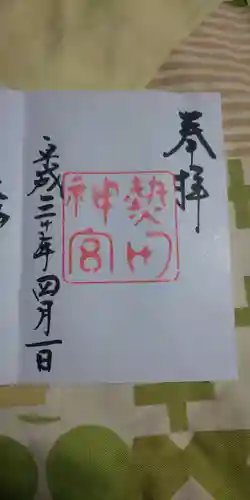 奉拝
熱田
神宮
平成三十年四月一日